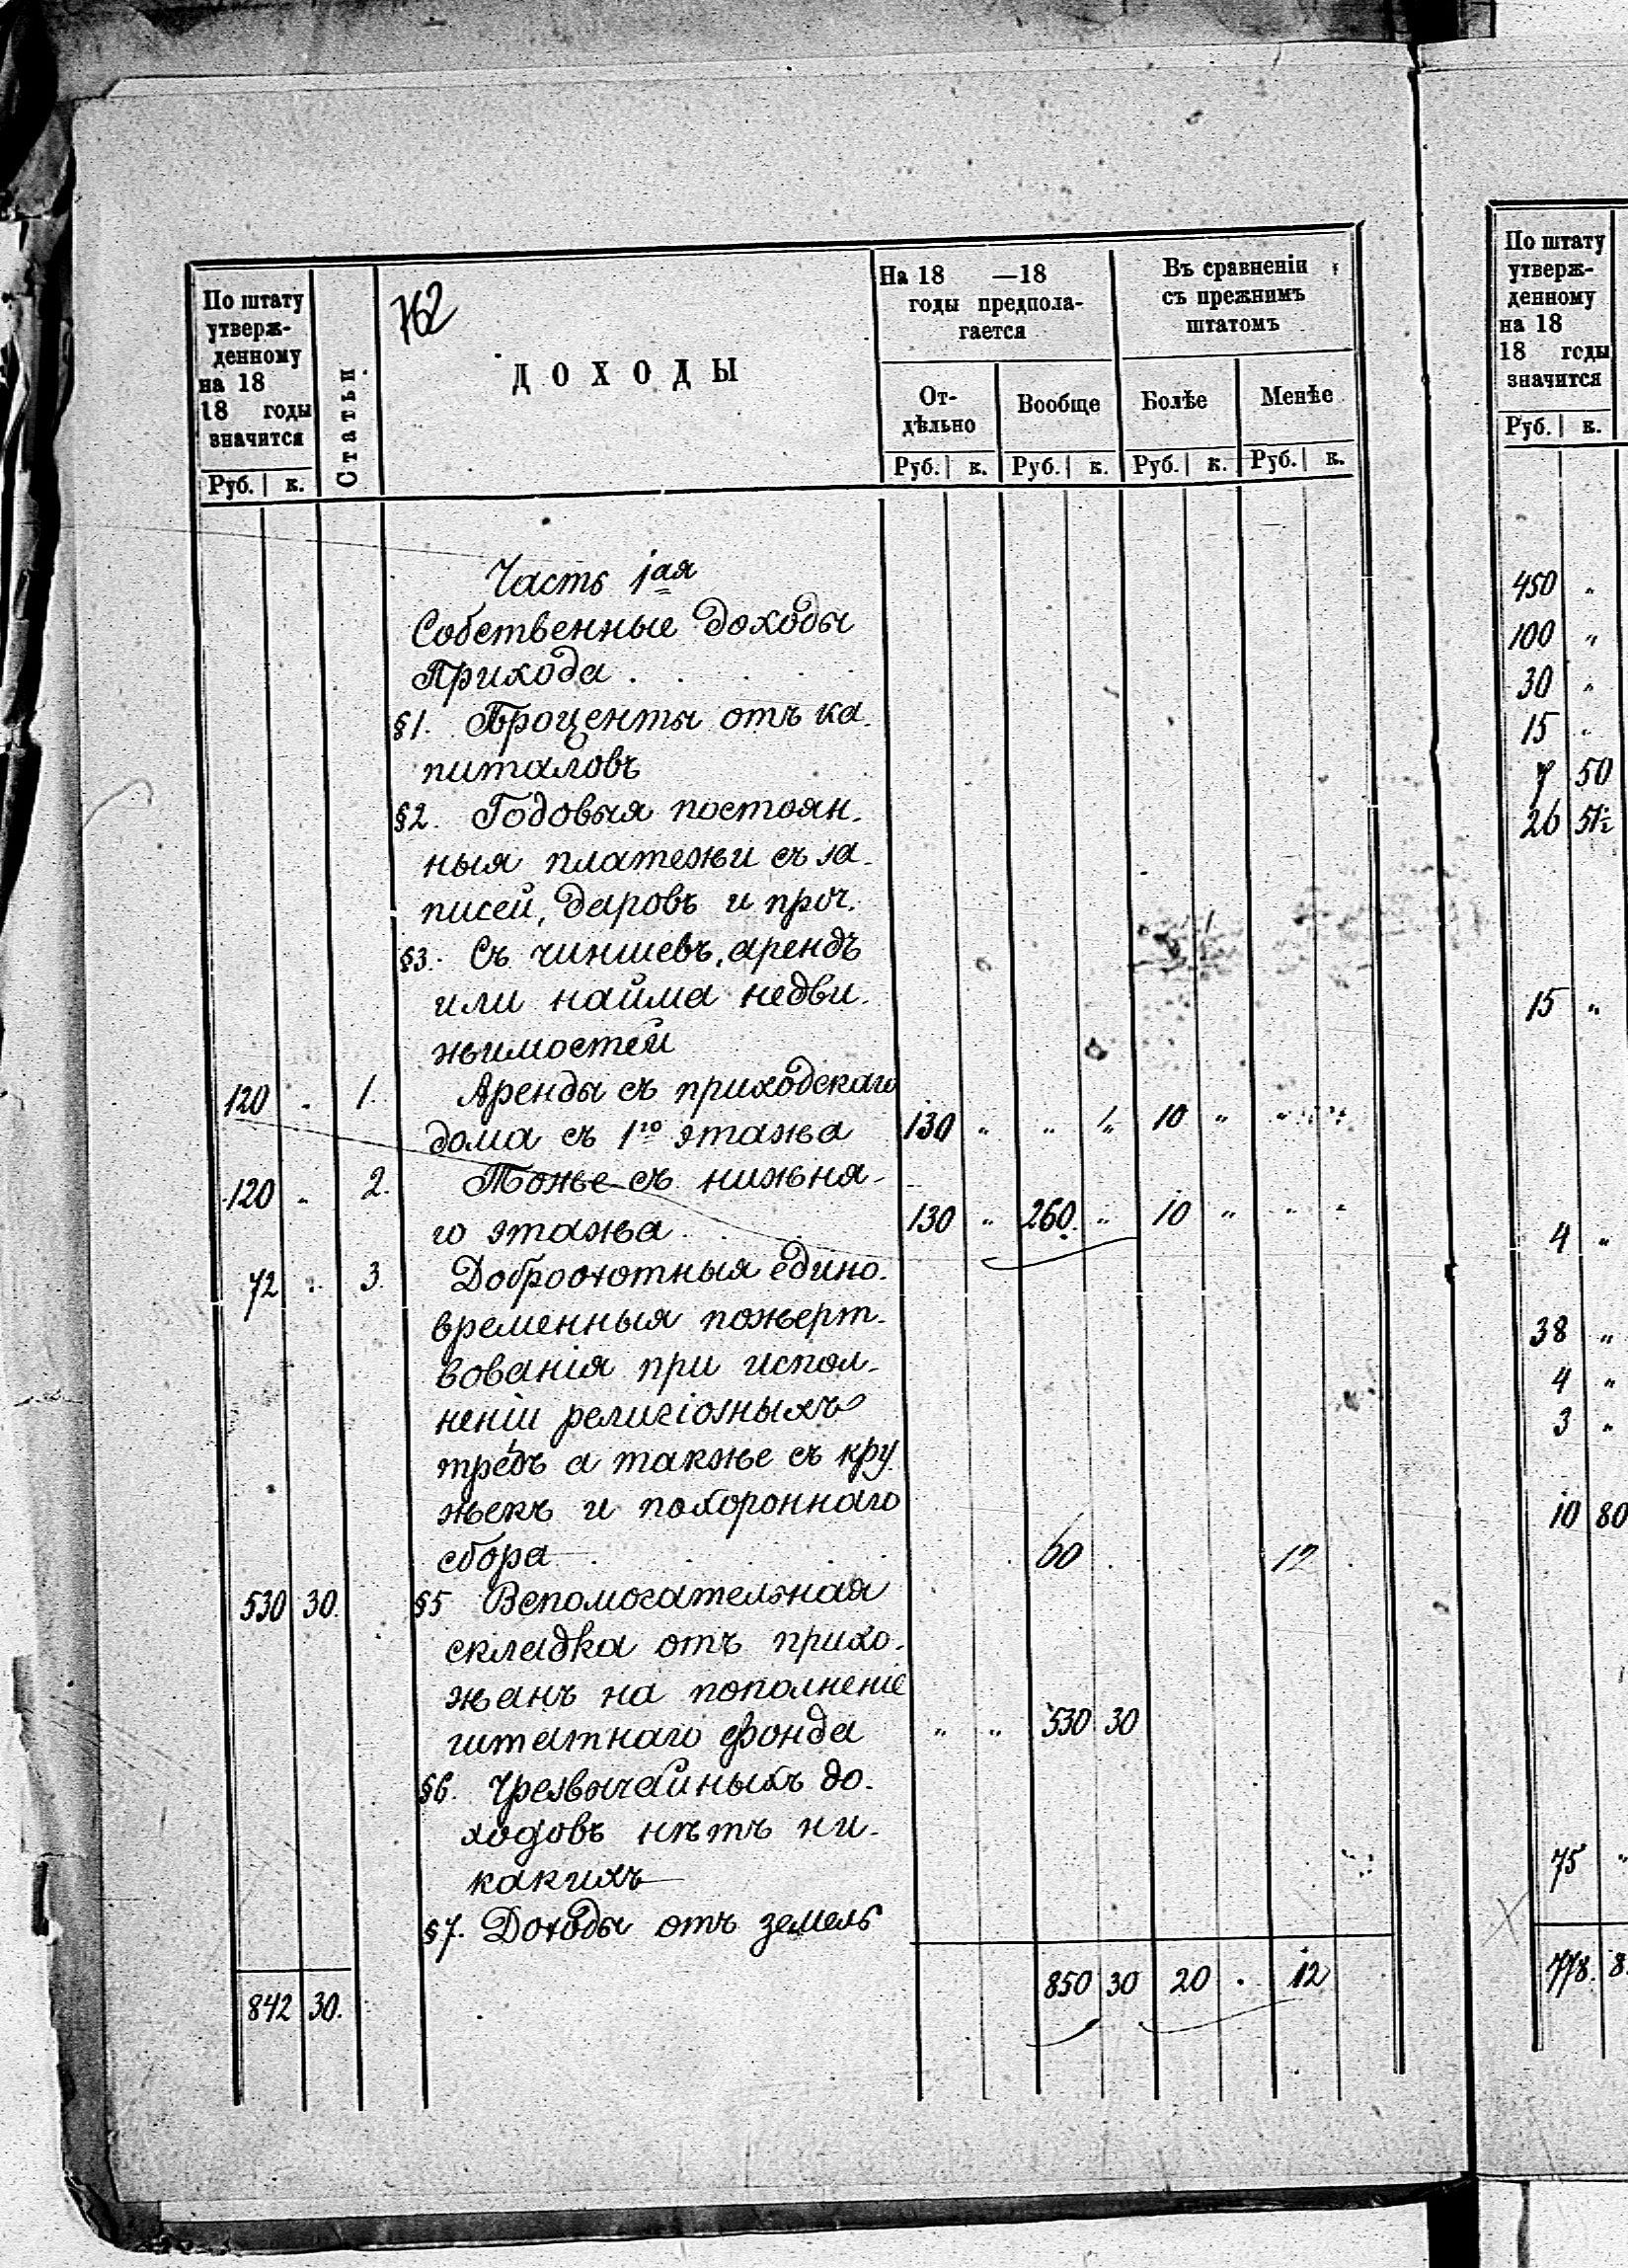 По штату
утверж-
денному
на 18
18 годы
значится
Руб. к.
Статьи.
762
ДОХОДЫ
На 18 —18
годы предпола-
гается
От-
дѣльно
Вообще
Руб. к. Руб. к.
Въ сравненіи
съ прежнимъ
штатомъ
Болѣе
Менѣе
Руб. к. Руб. к.
Часть 1ая
Собственные доходы
Прихода . . . . .
§1. Проценты отъ ка-
питаловъ
§2. Годовыя постоян-
ныя платежи съ за-
писей, даровъ и проч.
§3. Съ чиншевъ, арендъ
или найма недви-
жимостей
120 „ 1. Аренды съ приходскаго
дома съ 1го этажа 130 „ „ „ 10 „ „ „
120 „ 2. Тоже съ нижня-
го этажа . . . 130 „ 260. „ 10 „ „ „
72 „ 3. Доброхотныя едино-
временныя пожерт-
вованія при испол-
неніи религіозныхъ
требъ а также съ кру
жекъ и похороннаго
сбора . . . . . 60 . 12 .
530 30. §5 Вспомогательная
складка отъ прихо-
жанъ на пополненіе
штатнаго фонда „ „ 530 30
§6. Чрезвычайныхъ до-
ходовъ нѣтъ ни-
какихъ
§7. Доходы отъ земель
842 30. 850 30 20 . 12
По штату
утверж-
денному
на 18
18 годы
значится
Руб. к.
450 „
100 „
30 „
15 „
7 50
26 51½
15 „
4 „
38 „
4 „
3 „
10 80
75 „
778. 8